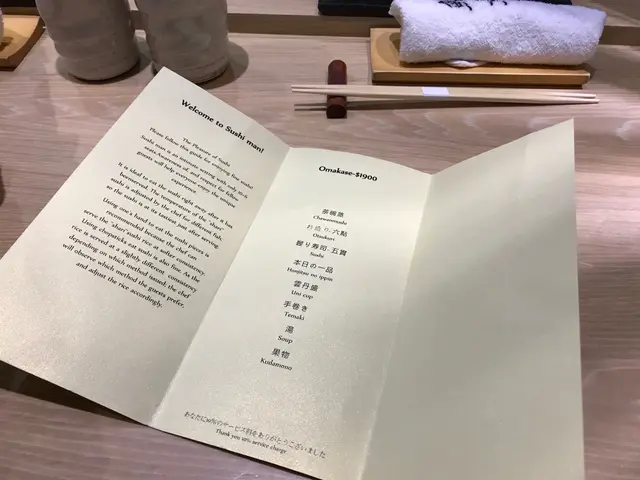 Welcome to Sushi man!
The Pleasure of Sushi
Please follow this guide for enjoying fine sushi!
Sushi man is an intimate setting with only
seats. Awareness of, and respect for fellow
guests will help everyone enjoy the unique
experience
It is ideal to eat the sushi right away after it has
beenserved. The temperature of the "shari"
sushi is adjusted by the chef for different fish,
so the sushi is at its tastiest just after serving.
Using one's hand to eat the sushi pieces is
recommended because the chef can
serve the "shari" sushi rice at softer consistency.
Using chopsticks eat sushi is also fine. As the
rice is served at a slightly different consistency
depending on which method used, the chef
will observe which method the guests prefer,
and adjust the rice accordingly.
Omakase-$1900
茶碗蒸
Chawanmushi
お造り.六點
Otsukuri
握り寿司.五貫
Sushi
本日の一品
Honjitsu no ippin
雲丹盛
Uni cup
手巻き
Temaki
湯
Soup
果物
Kudamono
あなたに10%のサービス料をありがとうございました
Thank you 10% service charge